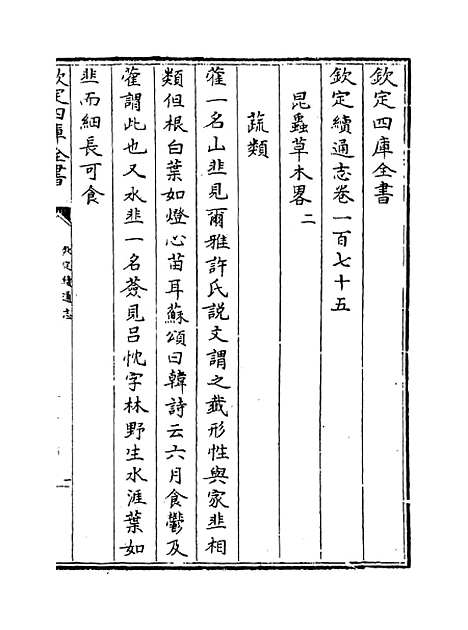 欽定四庫全書
欽定續通志卷一百七十五
昆蟲草木畧二
蔬類
藿一名山韭見爾雅許氏説文謂之韱形性與家韭相
類但根白葉如燈心苗耳蘇頌曰韓詩云六月食鬱及
藿謂此也又水韭一名䔬見吕忱字林野生水涯葉如
韭而細長可食
欽定四庫全書
欽定續通志
一